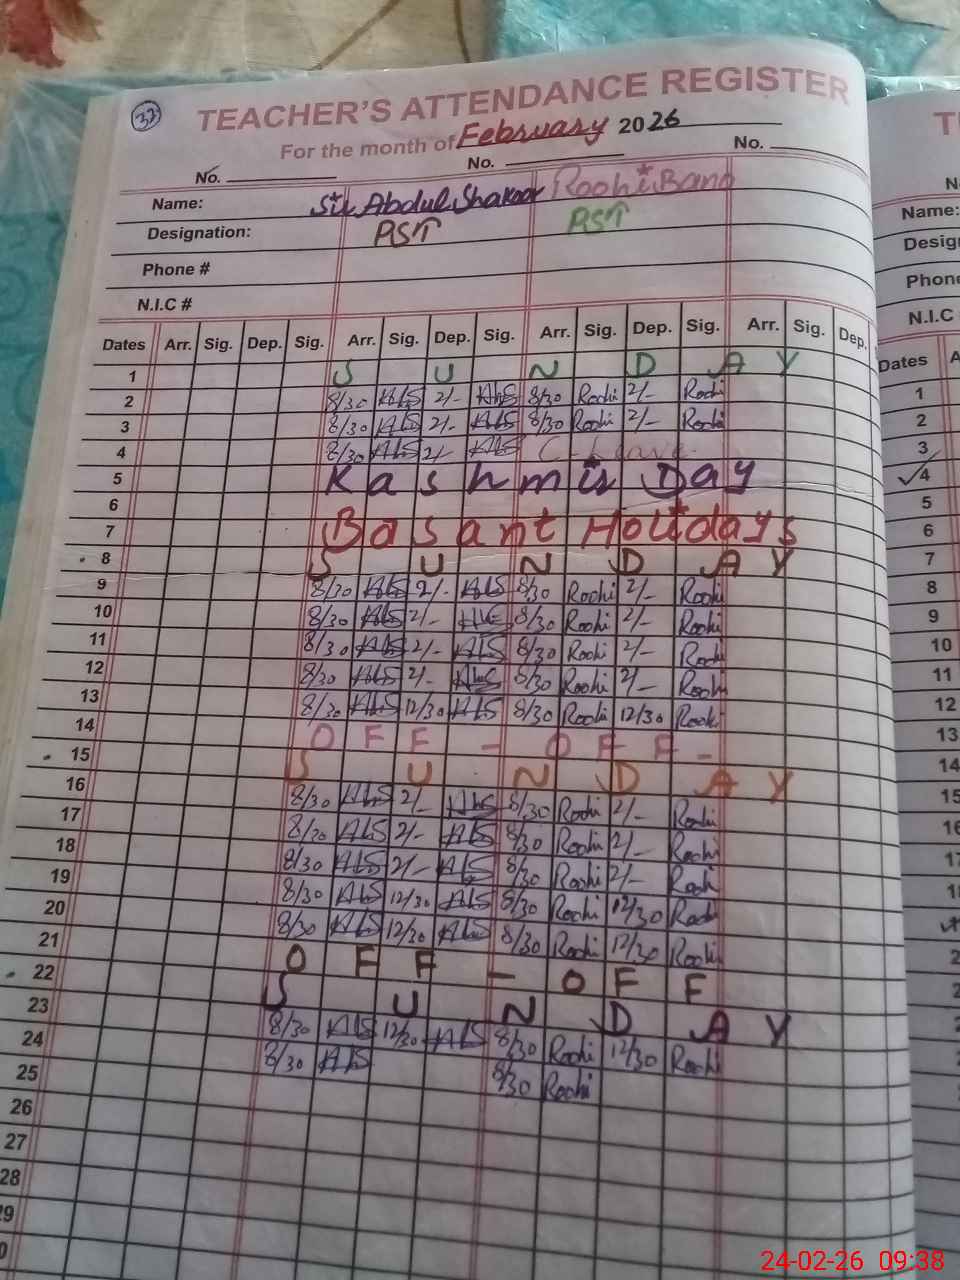 37
TEACHER'S ATTENDANCE REGISTER
For the month of February 2026
No. No. No.
Name: Sir Abdul Shakoor Roohi Bano
Designation: PST PST
Phone #
N.I.C #
Dates Arr. Sig. Dep. Sig. Arr. Sig. Dep. Sig. Arr. Sig. Dep. Sig. Arr. Sig. Dep.
1 S U N D A Y
2 8/30 AbS 2/- AbS 8/30 Roohi 2/- Roohi
3 8/30 AbS 2/- AbS 8/30 Roohi 2/- Roohi
4 8/30 AbS 2/- AbS C-Leave
5 Kashmir Day
6
7 Basant Holidays
8 S U N D A Y
9 8/30 AbS 2/- AbS 8/30 Roohi 2/- Roohi
10 8/30 AbS 2/- AbS 8/30 Roohi 2/- Roohi
11 8/30 AbS 2/- AbS 8/30 Roohi 2/- Roohi
12 8/30 AbS 2/- AbS 8/30 Roohi 2/- Roohi
13 8/30 AbS 12/30 AbS 8/30 Roohi 12/30 Roohi
14 O F F - O F F -
15 S U N D A Y
16 8/30 AbS 2/- AbS 8/30 Roohi 2/- Roohi
17 8/30 AbS 2/- AbS 8/30 Roohi 2/- Roohi
18 8/30 AbS 2/- AbS 8/30 Roohi 2/- Roohi
19 8/30 AbS 12/30 AbS 8/30 Roohi 12/30 Roohi
20 8/30 AbS 12/30 AbS 8/30 Roohi 12/30 Roohi
21 O F F - O F F
22 S U N D A Y
23 8/30 AbS 12/30 AbS 8/30 Roohi 12/30 Roohi
24 8/30 AbS 8/30 Roohi
25
26
27
28
29
Name:
Phone
N.I.C
Dates
1
2
3
4
5
6
7
8
9
10
11
12
13
14
15
24-02-26 09:38